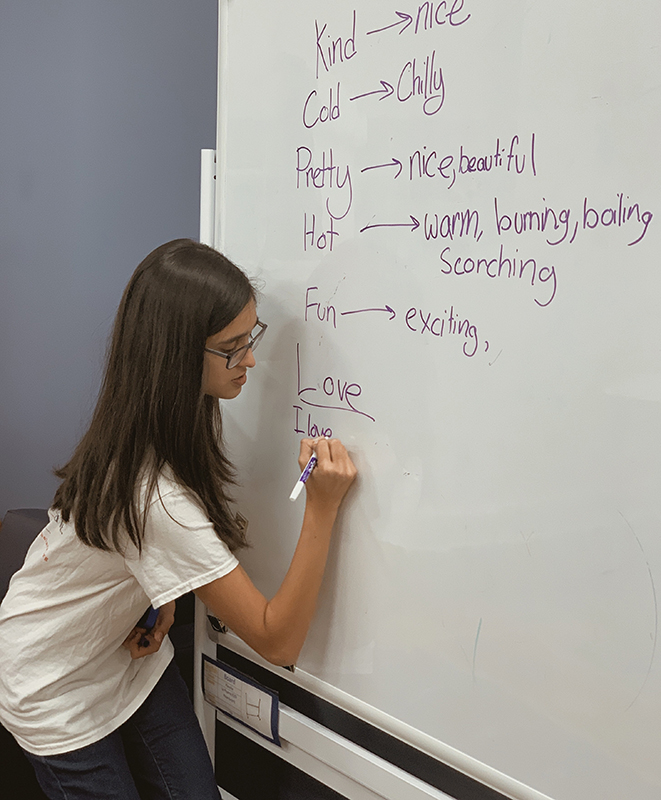 Kind → nice
Cold → Chilly
Pretty → nice, beautiful
Hot → warm, burning, boiling
Scorching
Fun → exciting,
Love
I love
Board
H